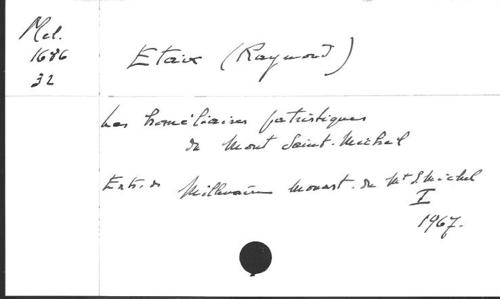 Mel.
1686
32
Etaix (Raymond)
Les homéliaires patristiques
du Mont Saint-Michel
Extr. de Millénaire monast. du Mt S. Michel
I
1967.